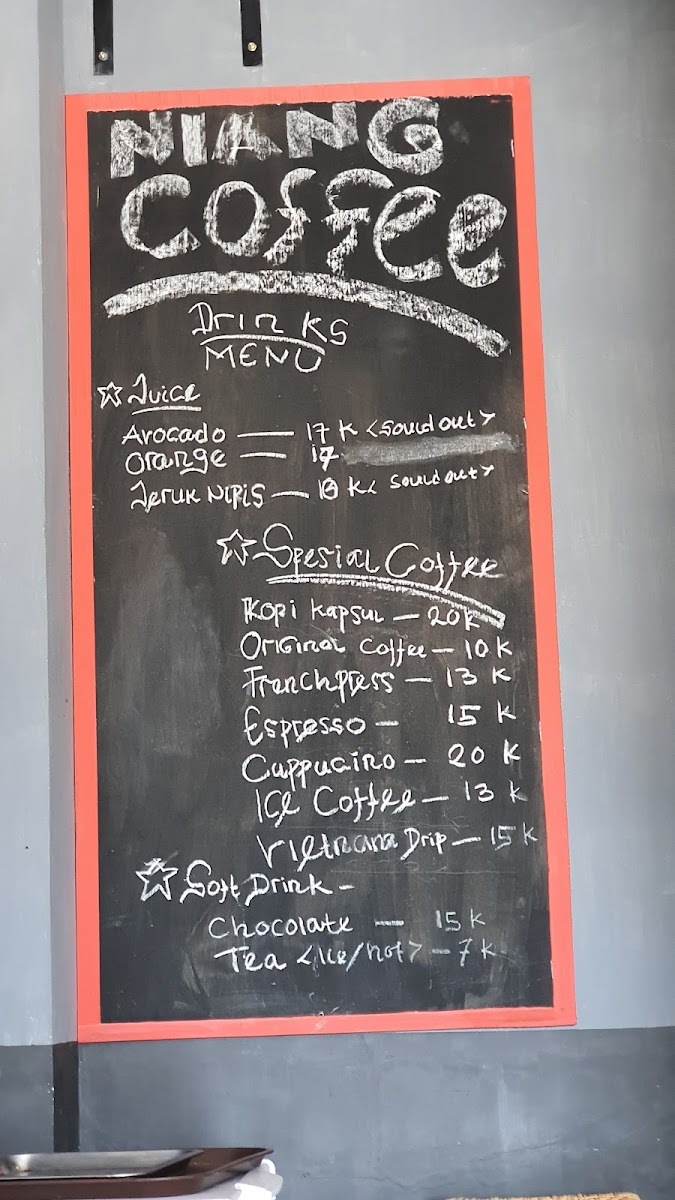 NIANG
Coffee
Drinks
MENU
☆ Juice
Avocado — 17 K <Sould out>
Orange — 17
Jeruk NIPIS — 18 K< Sould out>
☆ Spesial Coffee
Kopi Kapsul — 20K
Original Coffee — 10 K
Franchpress — 13 K
Espresso — 15 K
Cappucino — 20 K
ICe Coffee — 13 K
Vietnam Drip — 15 K
☆ Soft Drink -
Chocolate — 15 K
Tea <Ice/hot> — 7 K